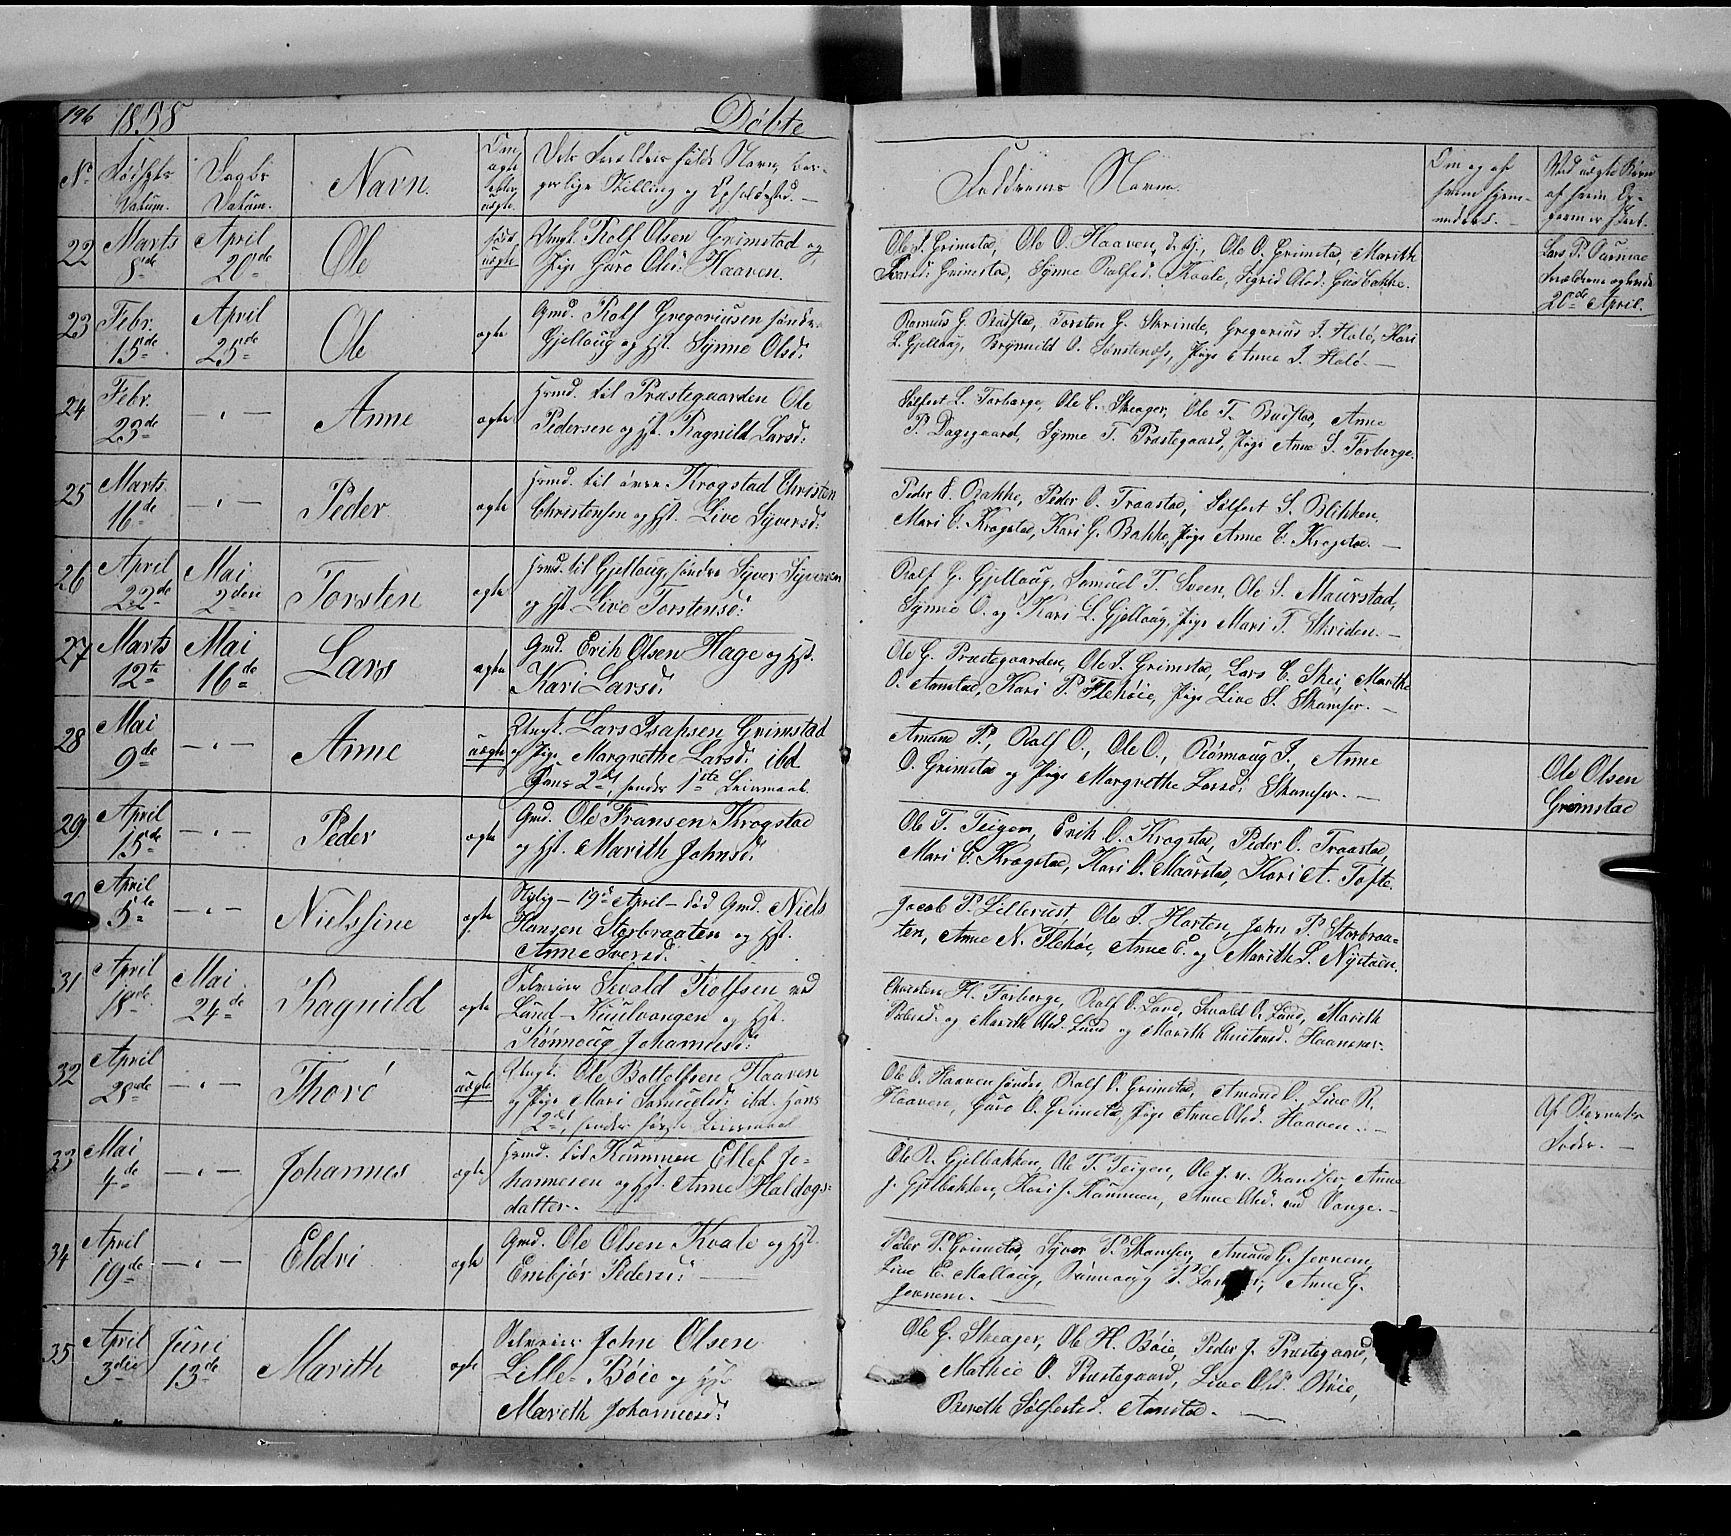 196 1858 Døbte
No Fødsels Datum. Daabs Datum. Navn. Om ægte eller uægte. Dets Forældres fulde Navn, borgerlige Stilling og Opholdssted. —
Faddrenes Navne.
22 Marts 8de April 20de Ole uægte Ungk. Rolf Olsen Grimstad og
Pige Guro Olsd: Haaven.
Ole J. Grimstad, Ole O. Haaven, Ole O. Grimstad, Marith
Grimstad, Synne Rolfsd. Kvale, Sigrid Olsd: Gudbakke.
20de April.
23 Febr. 15de April 25de Ole ægte Gmd. Rolf Gregoriusen søndre
Gjellaug og Hst. Synne Olsd:
Rasmus G. Rudstad, Torsten G. Skrinde, Gregorius J. Holø, Kari
L. Gjellaug, Brynnild O. Pige Anne J. Holø. —
24 Febr. 23de — " — Anne ægte Hmd. til Præstegaarden Ole
Pedersen og Hst. Ragnild Larsd:
Sølfest L. Forberge, Ole C. Skeager, Ole T. Rudstad, Anne
P. Dagsgaard, Synne T. Præstegaard, Pige Anne S. Forberge.
25 Marts 16de — " — Peder ægte Hmd. til øvre Krogstad Christen
Christensen og Hst. Live Syversd:
Peder E. Bakke, Peder O. Traastad, Sølfest S. Blikken,
Mari O. Krogstad, Kari G. Bakke, Pige Anne C. Krogstad. —
26 April 22de Mai 2den Torsten ægte Hmd. til Gjellaug, søndre Syver Syversen
og Hst. Live Torstensd:
Rolf G. Gjellaug, Samuel T. Sveen, Ole S. Maurstad,
Synne O. og Kari L. Gjellaug, Pige Mari T. Skriden. —
27 Marts 12te Mai 16de Lars ægte Gmd. Erik Olsen Hage og Hst.
Kari Larsd:
Ole G. Præstegaarden, Ole J. Grimstad, Lars E. Skei, Marithe
O. Aanstad, Kari P. Flekøie, Pige Live S. Skamser. —
28 Mai 9de — " — Anne uægte Ungk. Lars Isaksen Grimstad
og Pige Margrethe Larsd: ibd
Hans 2det, hendes 1ste Leiermaal.
Amund P., Rolf O., Ole O., Rønnaug J., Anne
O. Grimstad og Pige Margrethe Larsd: Skamser. —
Ole Olsen
Grimstad
29 April 15de — " — Peder ægte Gmd. Ole Fransen Krogstad
og Hst. Marith Johnsd:
Ole T. Teigen, Erik O. Krogstad, Peder O. Traastad,
Mari E. Krogstad, Kari O. Maurstad, Kari A. Tofte.
30 April 5te — " — Nielssine ægte Nylig — 19de April — død Gmd. Niels
Hansen Storbraaten og Hst.
Anne Iversd:
Jacob P. Lillerust, Ole J. Horten, John P. Storbraa-
ten, Anne N. Flekøi, Anne E. og Marith L. Nystuen.
31 April 18de Mai 24de Ragnild ægte Selveier Sivald Rolfsen ved
Lund — og Hst.
Rønnoug Johannesd:
Christen H. Forberge, Rolf O. Lund, Sivald O. Lund, Marith
Pedersd. og Marith Olsd. Lund og Marith Christensd. Haansnar.
32 April 28de — " — Thorø uægte Ungk. Ole Bottolfsen Haaven
og Pige Mari Samuelsd: ibd. Hans
2det, hendes første Leiermaal
Ole O. Haaven søndre, Rolf O. Grimstad, Amund O., Live R.
Haaven, Guro O. Grimstad, Pige Anne Olsd. Haaven. —
Af Barnets
Fader. —
33 Mai 4de — " — Johannes ægte Hmd. til Kummen Ellef Jo-
hannesen og Hst. Anne Haldogs-
datter. —
Ole R. Gjelbakken, Ole T. Teigen, Ole J. Anne
J. Gjelbakken, Kari J. Kummen, Anne Olsd. ved Vange. —
34 April 19de — " — Eldri ægte Gmd. Ole Olsen Kvale og Hst.
Embjør Pedersd: —
Peder P. Grimstad, Syver P. Skamser, Amund G. Jernem,
Live E. Mellaug, Rønnaug P. Anne G.
Jernem. —
35 April 3die Juni 13de Marith ægte Selveier John Olsen
Lille-Bøie og Hst.
Marith Johannesd:
Ole G. Skeager, Ole H. Bøie, Peder J. Præstegaard,
Mathie O. Præstegaard, Live Olsd. Bøie,
Pernth Sølfestsd. Aanstad. —